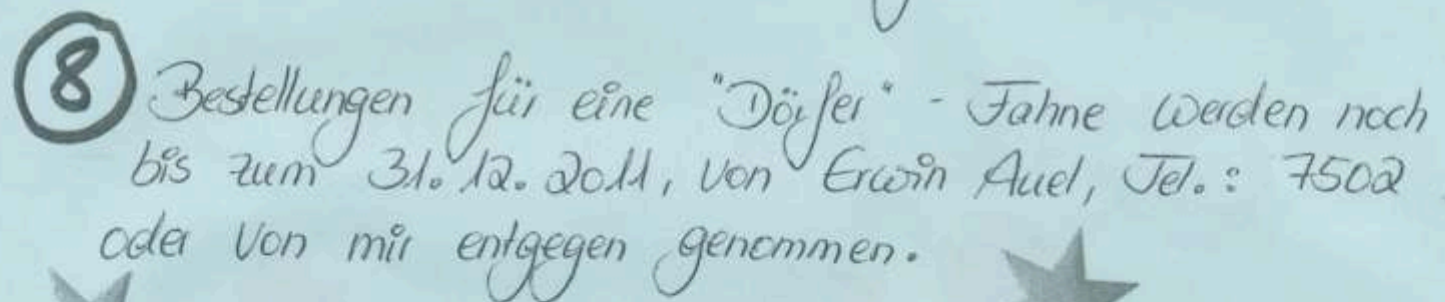 8 Bestellungen für eine "Dörfer" - Fahne werden noch
bis zum 31.12.2011, von Erwin Auel, Tel.: 7502
oder von mir entgegen genommen.